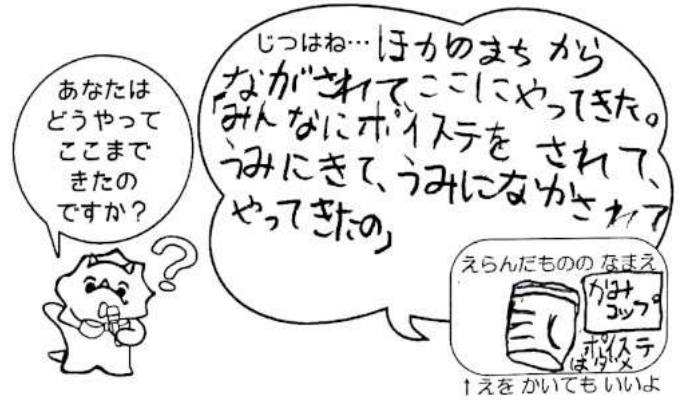 あなたは
どうやって
ここまで
きたの
ですか？
じつはね…ほかのまちから
ながされて、ここにやってきた。
「みんなにポイステを されて、
うみにきて、うみにながされて
やってきたの」
えらんだものの なまえ
かみ
コップ
ポイステ
はダメ
↑えを かいても いいよ